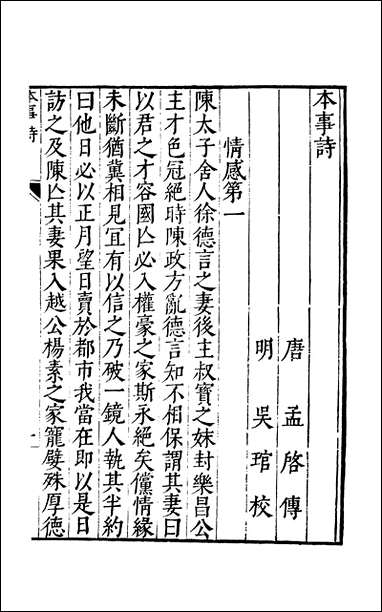 本事詩
唐 孟啓傳
明 吳琯校
情感第一
陳太子舍人徐德言之妻後主叔寶之妹封樂昌公
主才色冠絕時陳政方亂德言知不相保謂其妻曰
以君之才容國亾必入權豪之家斯永絕矣儻情緣
未斷猶冀相見冝有以信之乃破一鏡人執其半約
曰他日必以正月望日賣於都市我當在即以是日
訪之及陳亾其妻果入越公楊素之家寵嬖殊厚德
本事詩
一